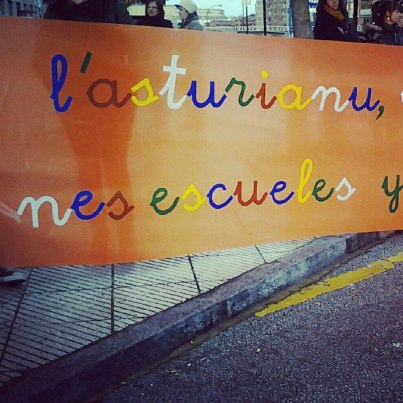 l'asturianu,
nes escueles y